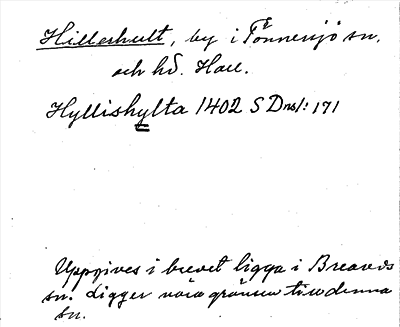 Hilleshult, by i Tönnersjö sn.
och hd. Hall.
Hyllishylta 1402 SDns 1: 171
Uppgives i brevet ligga i Breareds
sn. Ligger nära gränsen till denna
sn.